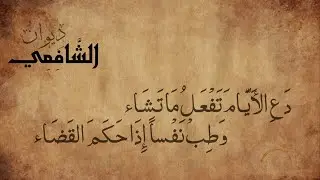 ديوان
الشَّافِعِي
دَعِ الأَيَّامَ تَفْعَلُ مَا تَشَاء
وَطِبْ نَفْساً إِذَا حَكَمَ القَضَاء